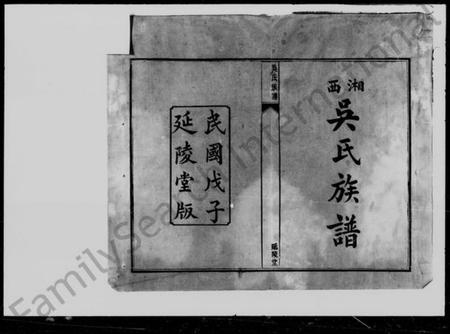 湘西
吳氏族譜
吳氏族譜
延陵堂
民國戊子
延陵堂版
FamilySearch International